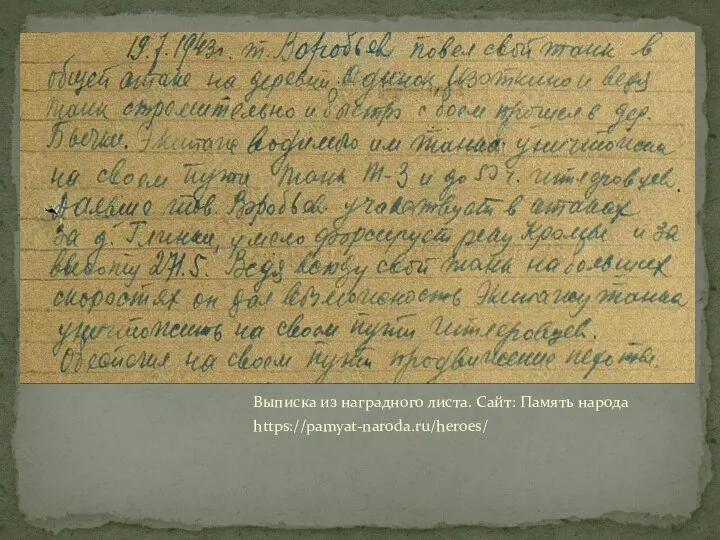 19.7.1943г. т. Воробьев повел свой танк в
общей атаке на деревни Один и ведя
танк стремительно и быстро с боем прошел в дер.
Бычки. Экипаж водимого им танка уничтожил
на своем пути танк Т-3 и до 50 ч. гитлеровцев.
Дальше тов. Воробьев участвует в атаках
за д. Глинки, умело форсирует реку Кромцы и за
высоту 271.5. Ведя всюду свой танк на больших
скоростях он дал возможность Экипажу танка
уничтожить на своем пути гитлеровцев.
на своем пути продвижение пехоты.
Выписка из наградного листа. Сайт: Память народа
https://pamyat-naroda.ru/heroes/